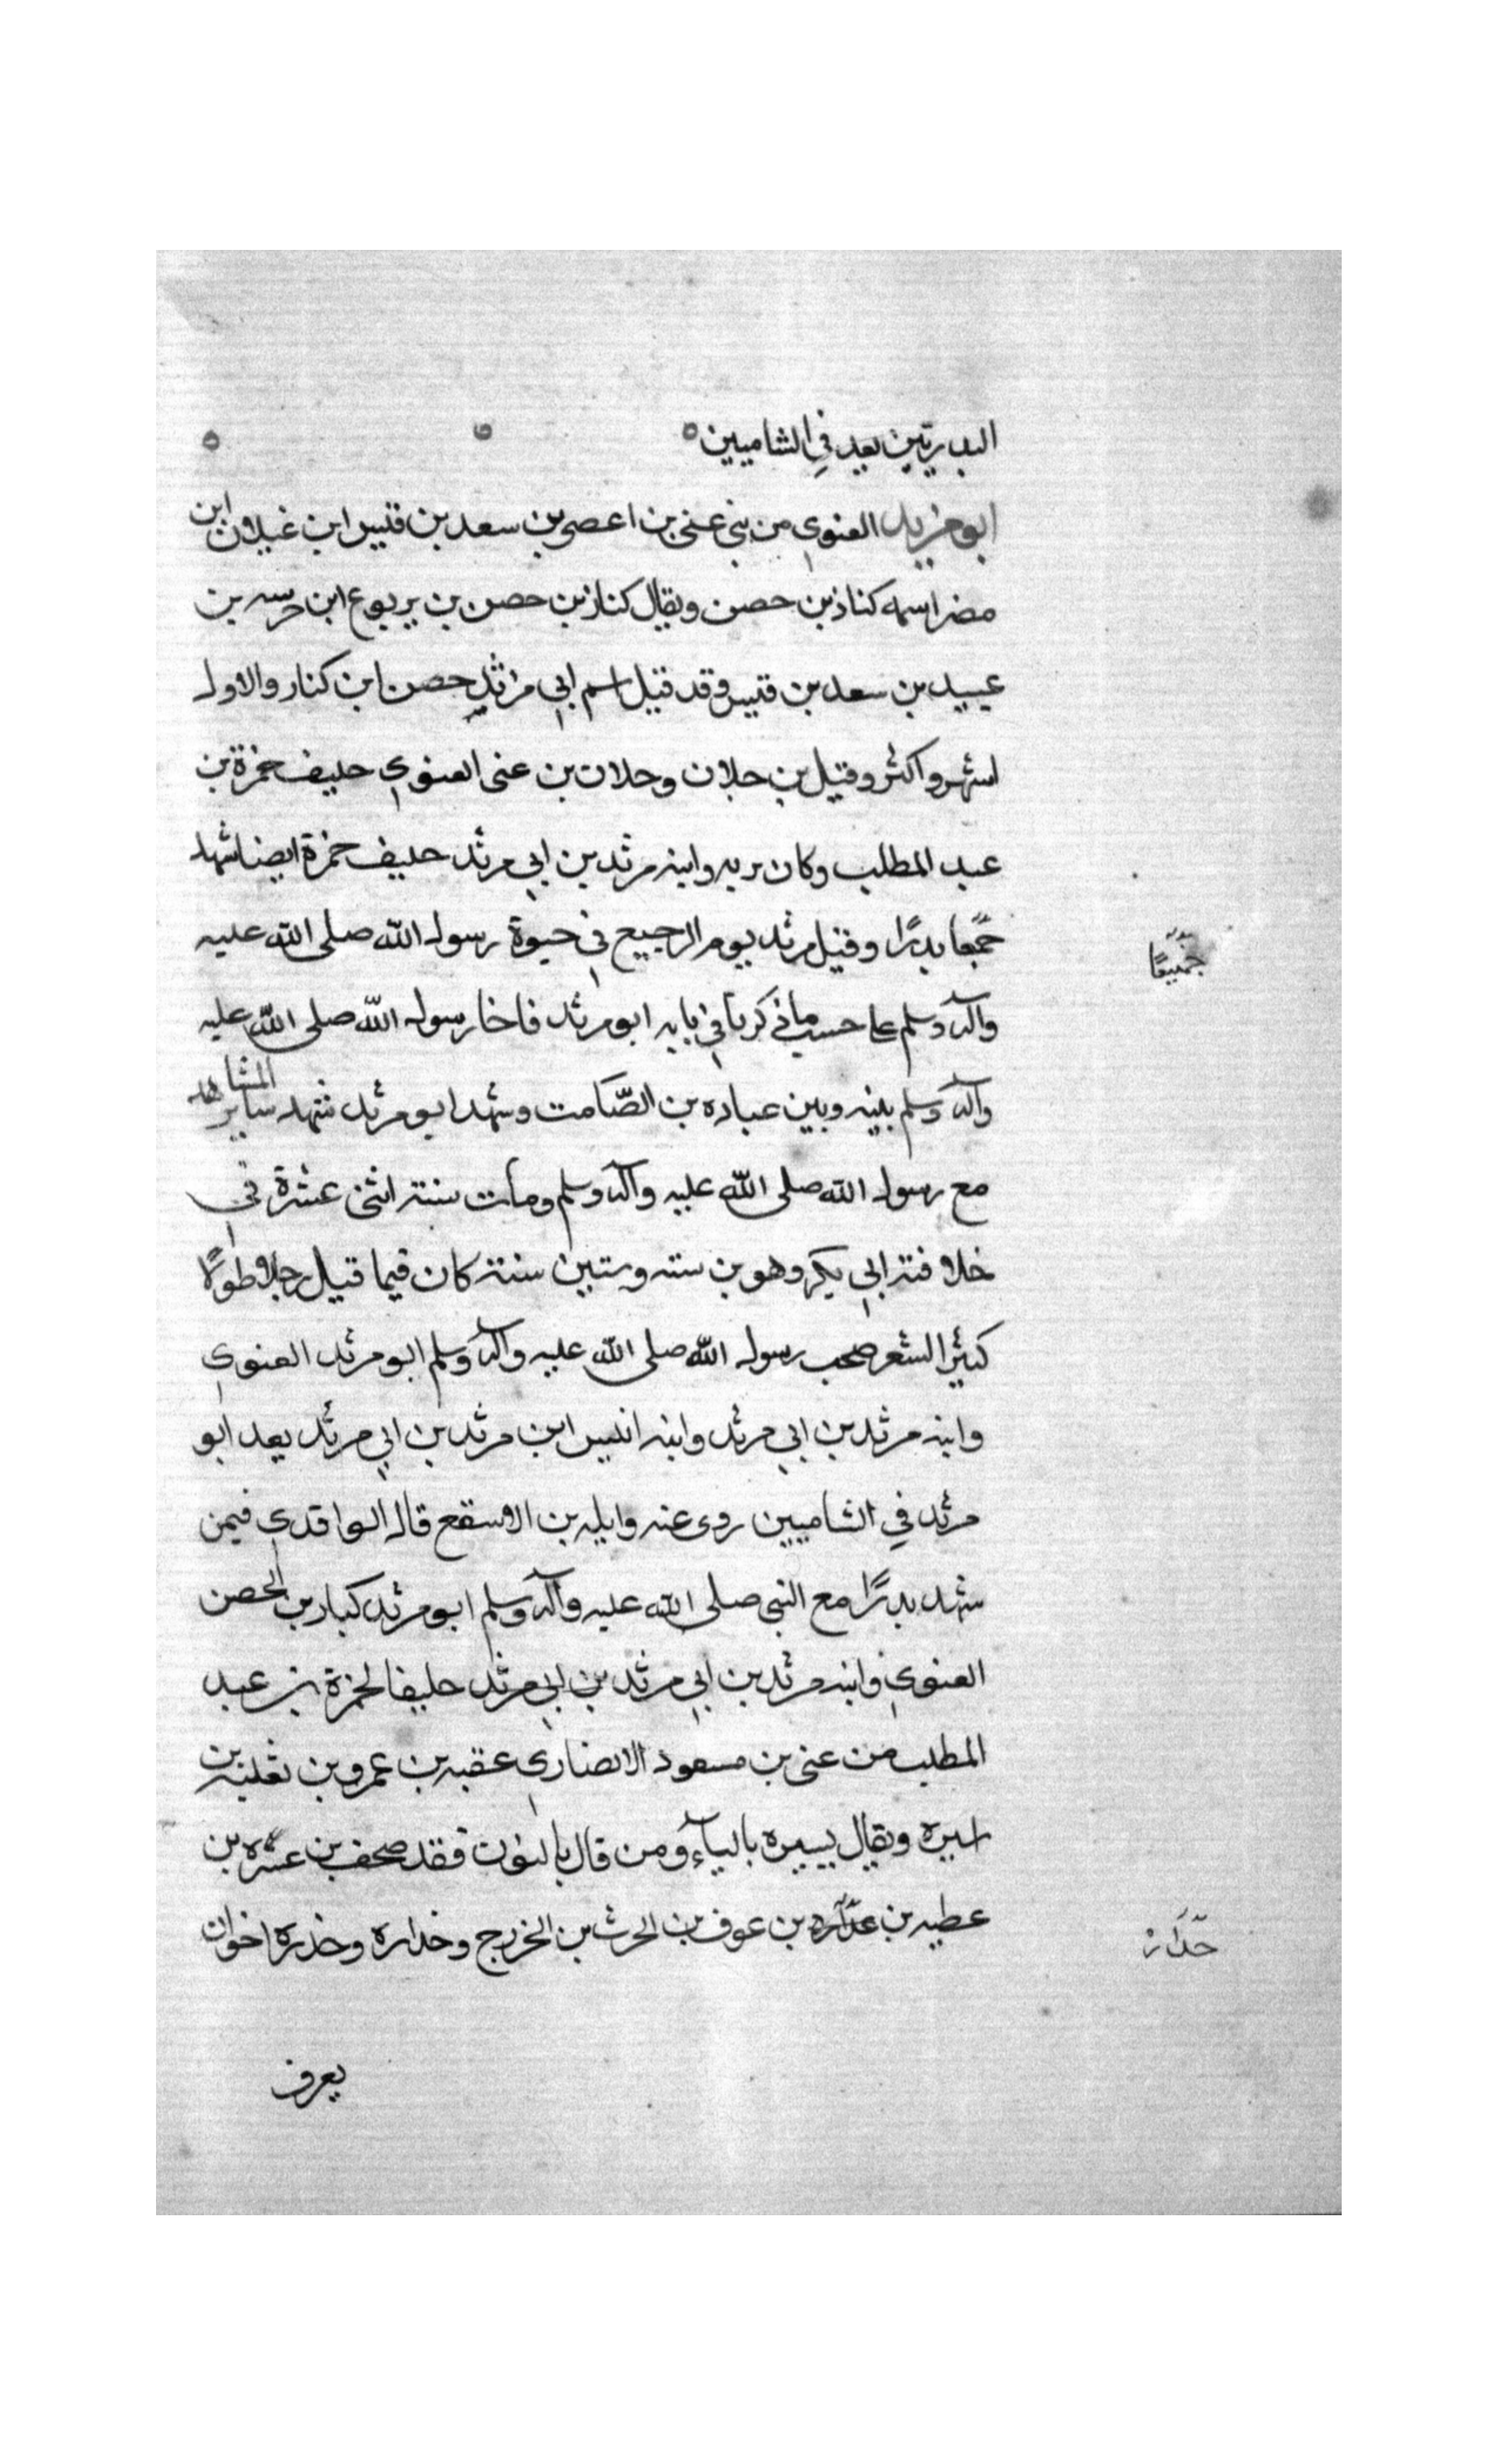 البدريين يعد في الشاميين
ابو مزيد الغنوي من بني غنى بن اعصر بن سعد بن قيس ابن غيلان ابن
مضر اسمه كناز بن حصن ويقال كناز بن حصن بن يربوع ابن خرسه بن
عبيد بن سعد بن قيس وقد قيل اسم ابي مرثد حصن ابن كنار والاول
اشهر واكثر وقيل بن جلان وجلان بن غنى الغنوي حليف حمزة بن
عبد المطلب وكان تربه وابنه مرثد بن ابي مرثد حليف حمزة ايضا شهدا
جمیعا بدرًا وقتل مرثد يوم الرجيع في حيوة رسول الله صلى الله عليه
جميعًا
وآله وسلم على حسب ما ذكرنا في بابه ابو مرثد فاخا رسول الله صلى الله عليه
وآله وسلم بينه وبين عباده بن الصّامت وشهد ابو مرثد شهد سائر المشاهد
مع رسول الله صلى الله عليه وآله وسلم ومات سنة اثنى عشرة في
خلافة ابي بكر وهو بن سته وستين سنة كان فيما قيل رجلا طوالا
كثير الشعر صحب رسول الله صلى الله عليه وآله وسلم ابو مرثد الغنوي
وابنه مرثد بن ابي مرثد وابنه انيس ابن مرثد بن ابي مرثد يعد ابو
مرثد في الشاميين روى عنه وايله بن الاسقع قال الواقدي فيمن
شهد بدرًا مع النبي صلى الله عليه وآله وسلم ابو مرثد كبار بن الحصن
الغنوي وابنه مرثد بن ابي مرثد بن ابي مرثد حليفا لحمزة بن عبد
المطلب من غنى بن مسعود الانصاري عقبه بن عمرو بن ثعلبة بن
اسيره ويقال يسيره بالياء ومن قال بالنون فقد صحف بن عشره بن
عطيه بن عدّاره بن عوف بن الحرث بن الخزرج وخداره وخدره اخوان
خدّار
يعرف